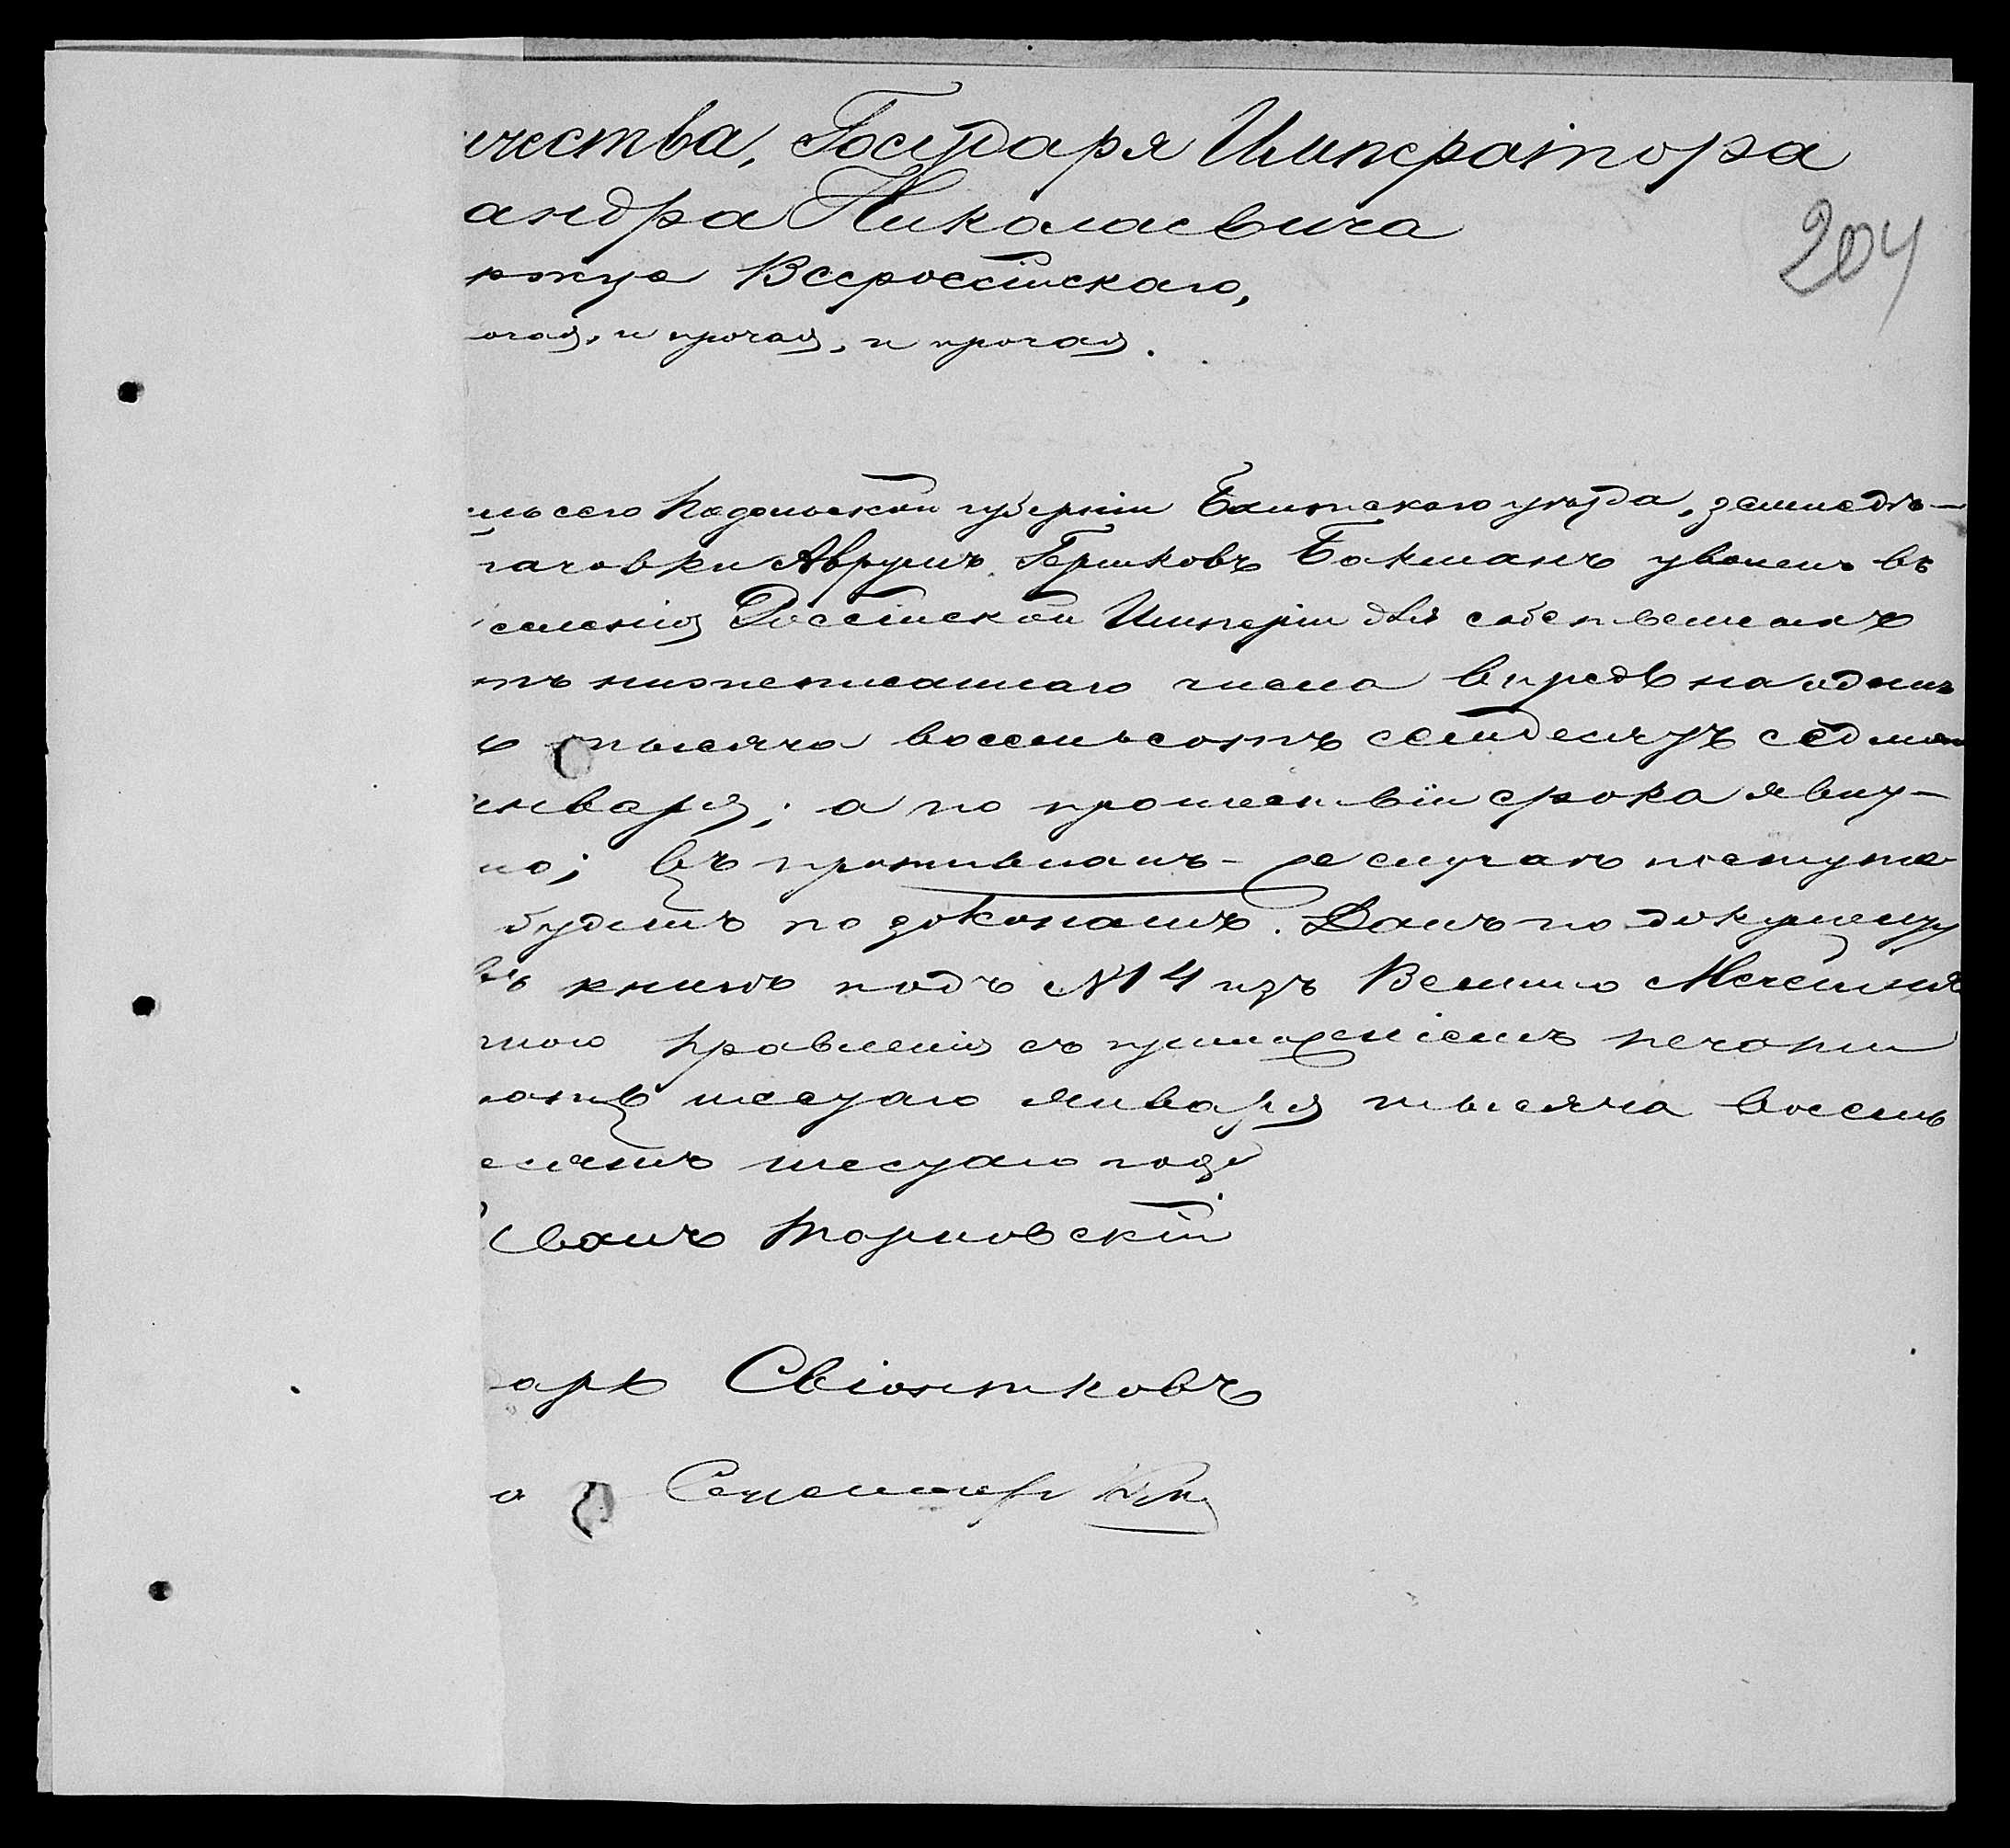 ичества, Государя Императора
андра Николаевича
ржца Всероссійскаго,
204
очая, и прочая, и прочая.
сего Подольской губерніи Балтскаго уѣзда, земледѣ-
Аврумъ Гершковъ Бакманъ уволенъ въ
селенія Россійской Имперіи для собственныхъ
тъ нижеписаннаго числа впредь на одинъ
тысяча восемьсотъ семдесятъ седмо
января; а по прошествіи срока явиу-
но; въ противномъ-же случаѣ поступ
будетъ по законамъ. Данъ по документу
въ книгѣ подъ №14 изъ Велико Мечетня
ного Правленія съ приложеніемъ печати
шестаго января тысяча восемь
есятъ шестаго года
Иванъ Тарновскій
арь Свіонтковъ